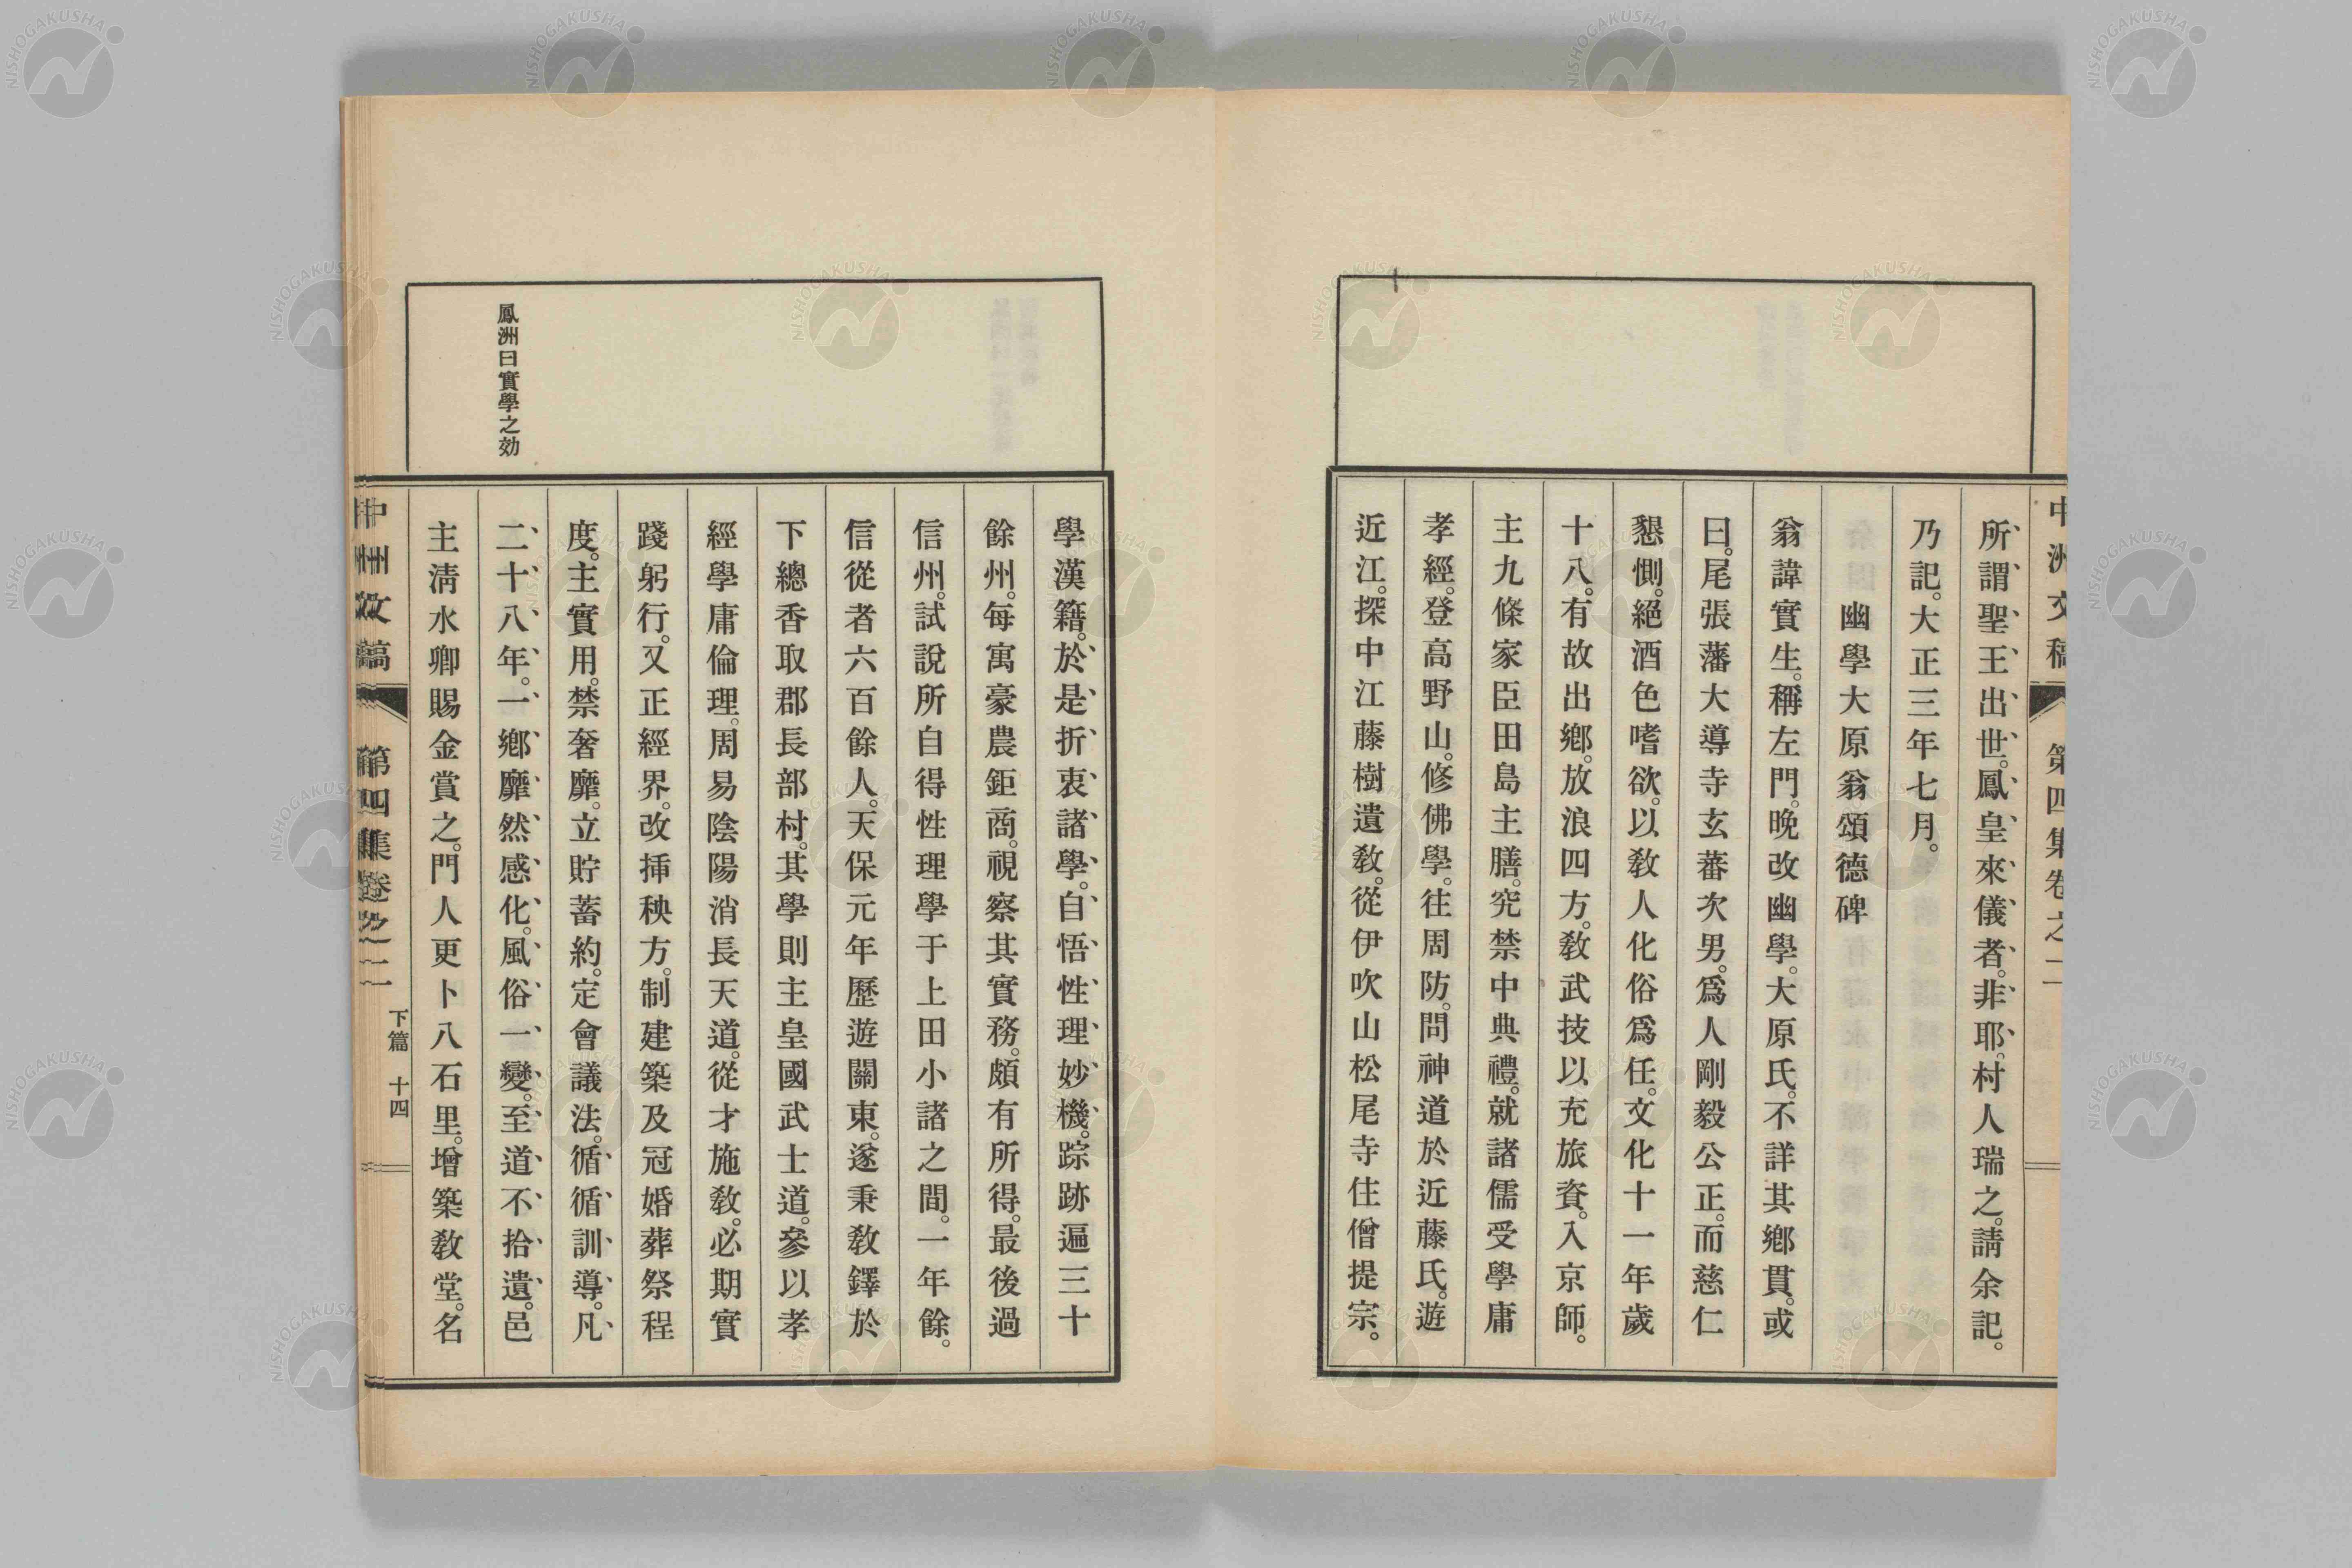 中洲文稿 第四集卷之二
所謂聖王出世。鳳皇來儀者。非耶。村人瑞之。請余記。
乃記。大正三年七月。
幽學大原翁頌德碑
翁諱實生。稱左門。晩改幽學。大原氏。不詳其鄕貫。或
曰。尾張藩大導寺玄蕃次男。爲人剛毅公正。而慈仁
懇惻。絕酒色嗜欲。以敎人化俗爲任。文化十一年歲
十八。有故出鄕。放浪四方。敎武技以充旅資。入京師。
主九條家臣田島主膳。究禁中典禮。就諸儒受學庸
孝經。登高野山。修佛學。往周防。問神道於近藤氏。遊
近江。探中江藤樹遺敎。從伊吹山松尾寺住僧提宗。
學漢籍。於是折衷諸學。自悟性理妙機。踪跡遍三十
餘州。每寓豪農鉅商。視察其實務。頗有所得。最後過
信州。試說所自得性理學于上田小諸之間。一年餘。
信從者六百餘人。天保元年歷遊關東。遂秉敎鐸於
下總香取郡長部村。其學則主皇國武士道。參以孝
經學庸倫理。周易陰陽消長天道。從才施敎。必期實
踐躬行。又正經界。改挿秧方。制建築及冠婚葬祭程
度。主實用。禁奢靡。立貯蓄約。定會議法。循循訓導。凡
二十八年。一鄕靡然感化。風俗一變。至道不拾遺。邑
主淸水卿賜金賞之。門人更卜八石里。增築敎堂。名
鳳洲曰實學之効
中洲文稿 第四集卷之二 下篇 十四
NISHOGAKUSHA